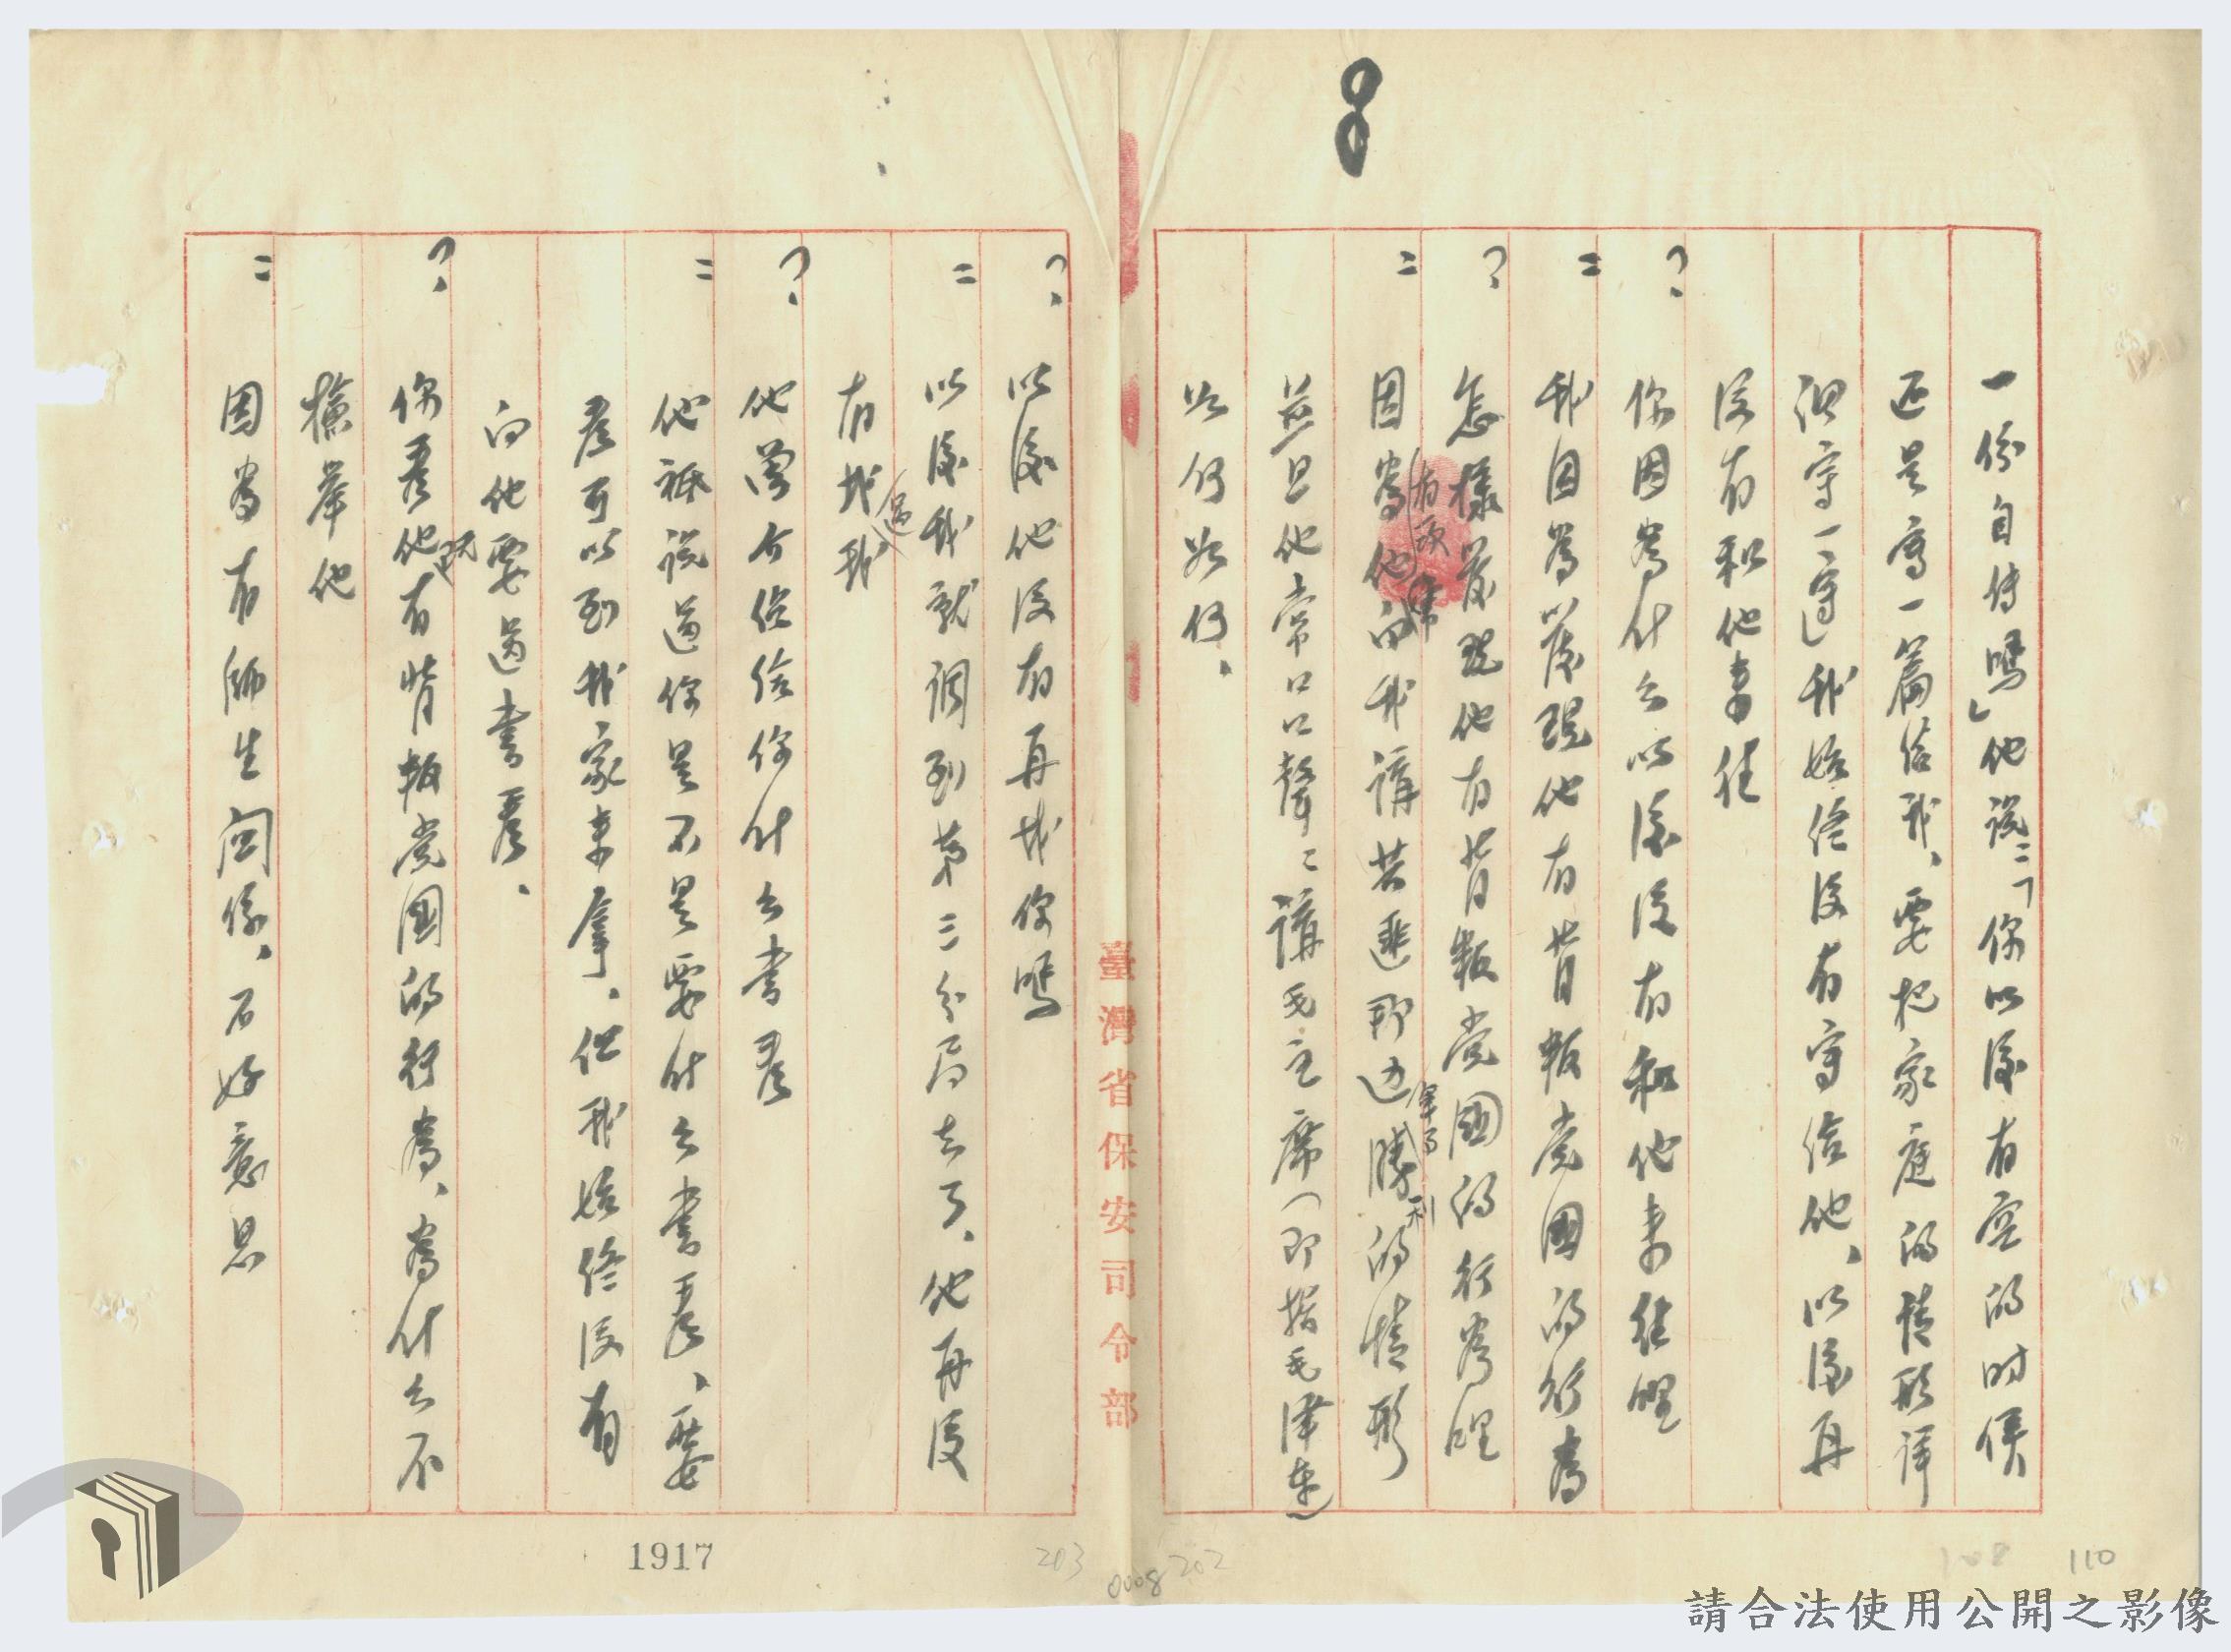 一份自傳嗎」他説:「你以後有空的时候
还是寫一篇给我、要把家庭的情形详
细写一写」我始终没有写给他、以後再
没有和他来往
? 你因為什么以後没有和他来往呢
: 我因為發現他有背叛党國的行為
? 怎樣發現他有背叛党國的行為呢
: 因為他有两次常向我講共匪那边軍事勝利的情形
並且他常口口聲聲講毛主席(即指毛澤東)
如何如何、
? 以後他没有再找你嗎
: 以後我就调到第三分局去了、他再没
有找過我
? 他曾介绍给你什么書看
: 他祇説過你是不是要什么書看、要
看可以到我家来拿、但我始终没有
向他要過書看、
? 你看他既有背叛党國的行為、為什么不
檢舉他
: 因為有師生関係、不好意思
臺灣省保安司令部
1917
203
0008 202
108
110
請合法使用公開之影像